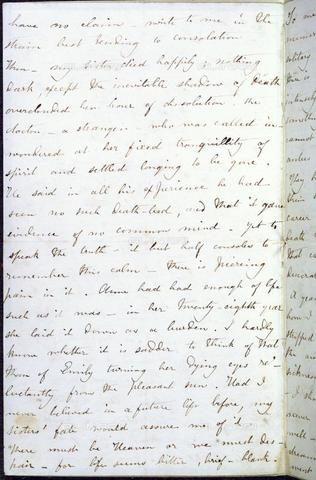 have no claim - write to me in the
strain best tending to consolation
Then - my sister died happily ; nothing
dark except the inevitable shadow of Death
overclouded her hour of dissolution - the
doctor - a stranger - who was called in
wondered at her fixed tranquillity of
spirit and settled longing to be gone.
He said in all his experience he had
seen no such death-bed, and that it gave
evidence of no common mind - Yet to
speak the truth - it but half consoles to
remember this calm - there is piercing
pain in it. Anne had had enough of life
such as it was - in her twenty-eighth year
she laid it down as a burden. I hardly
know whether it is sadder to think of that
than of Emily turning her dying eyes re-
luctantly from the pleasant sun. Had I
never believed in a future life before, my
Sisters' fate would assure me of it.
There must be Heaven or we must des-
pair - for life seems bitter, brief - blank.
To me